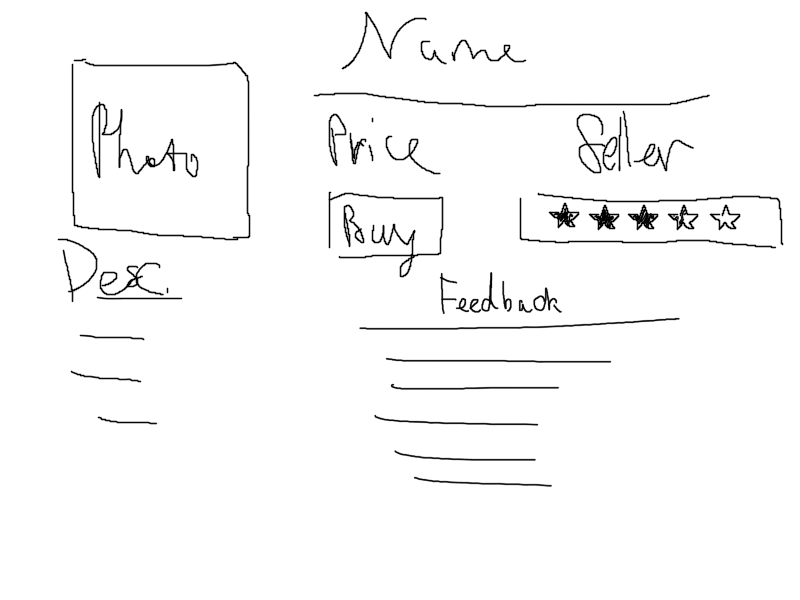 Name
Photo
Price
Seller
Buy
Desc.
Feedback